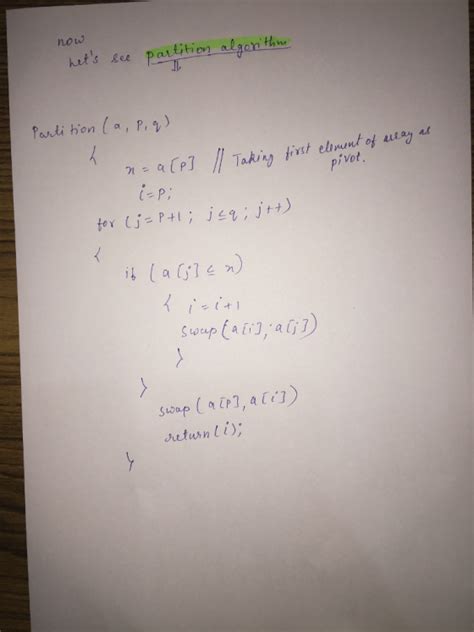 now
Let's see partition algorithm
⇓
Partition (a, p, q)
{
x = a[p] // Taking first element of array as
pivot.
i=p;
for (j=p+1; j≤q; j++)
{
if (a[j] ≤ x)
{ i=i+1
swap(a[i], a[j])
}
}
swap (a[p], a[i])
return(i);
}